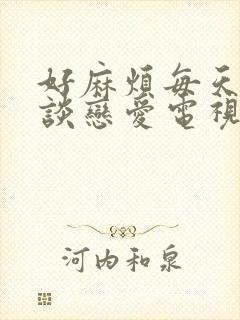 好麻煩每天
談戀愛電視
河内和泉